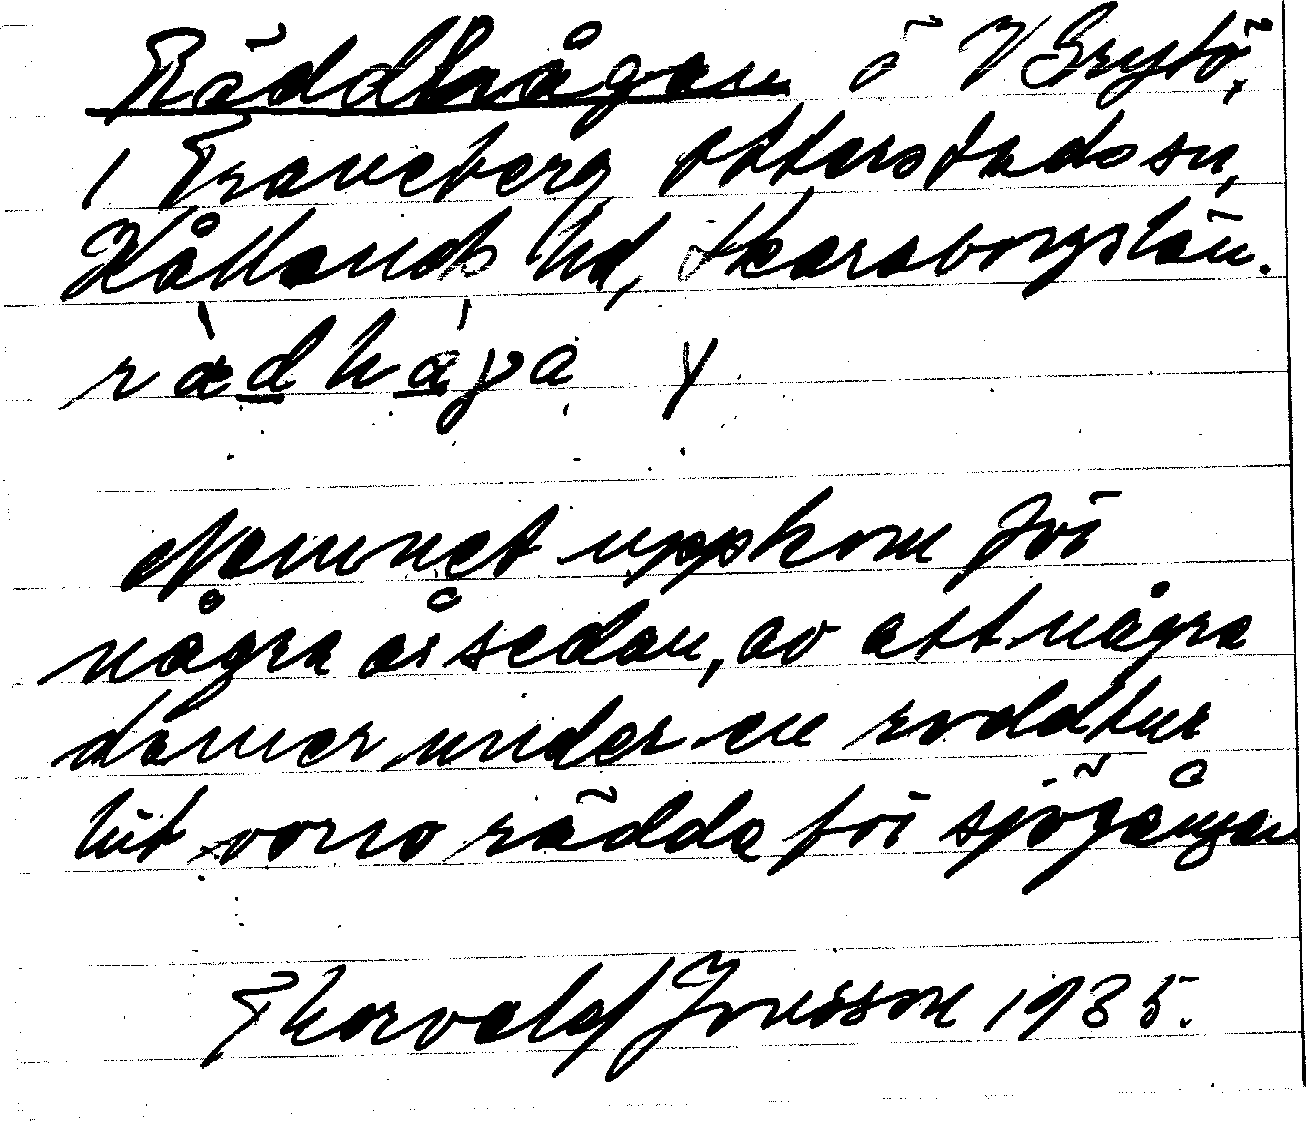 Räddhågan ö V Grytö,
i Traneberg Otterstads sn,
Kållands hd, Skaraborgs län.
Namnet uppkom för
några år sedan, av att några
damer under en roddtur
hit voro rädda för sjögången
Thorvald Jonsson 1935.